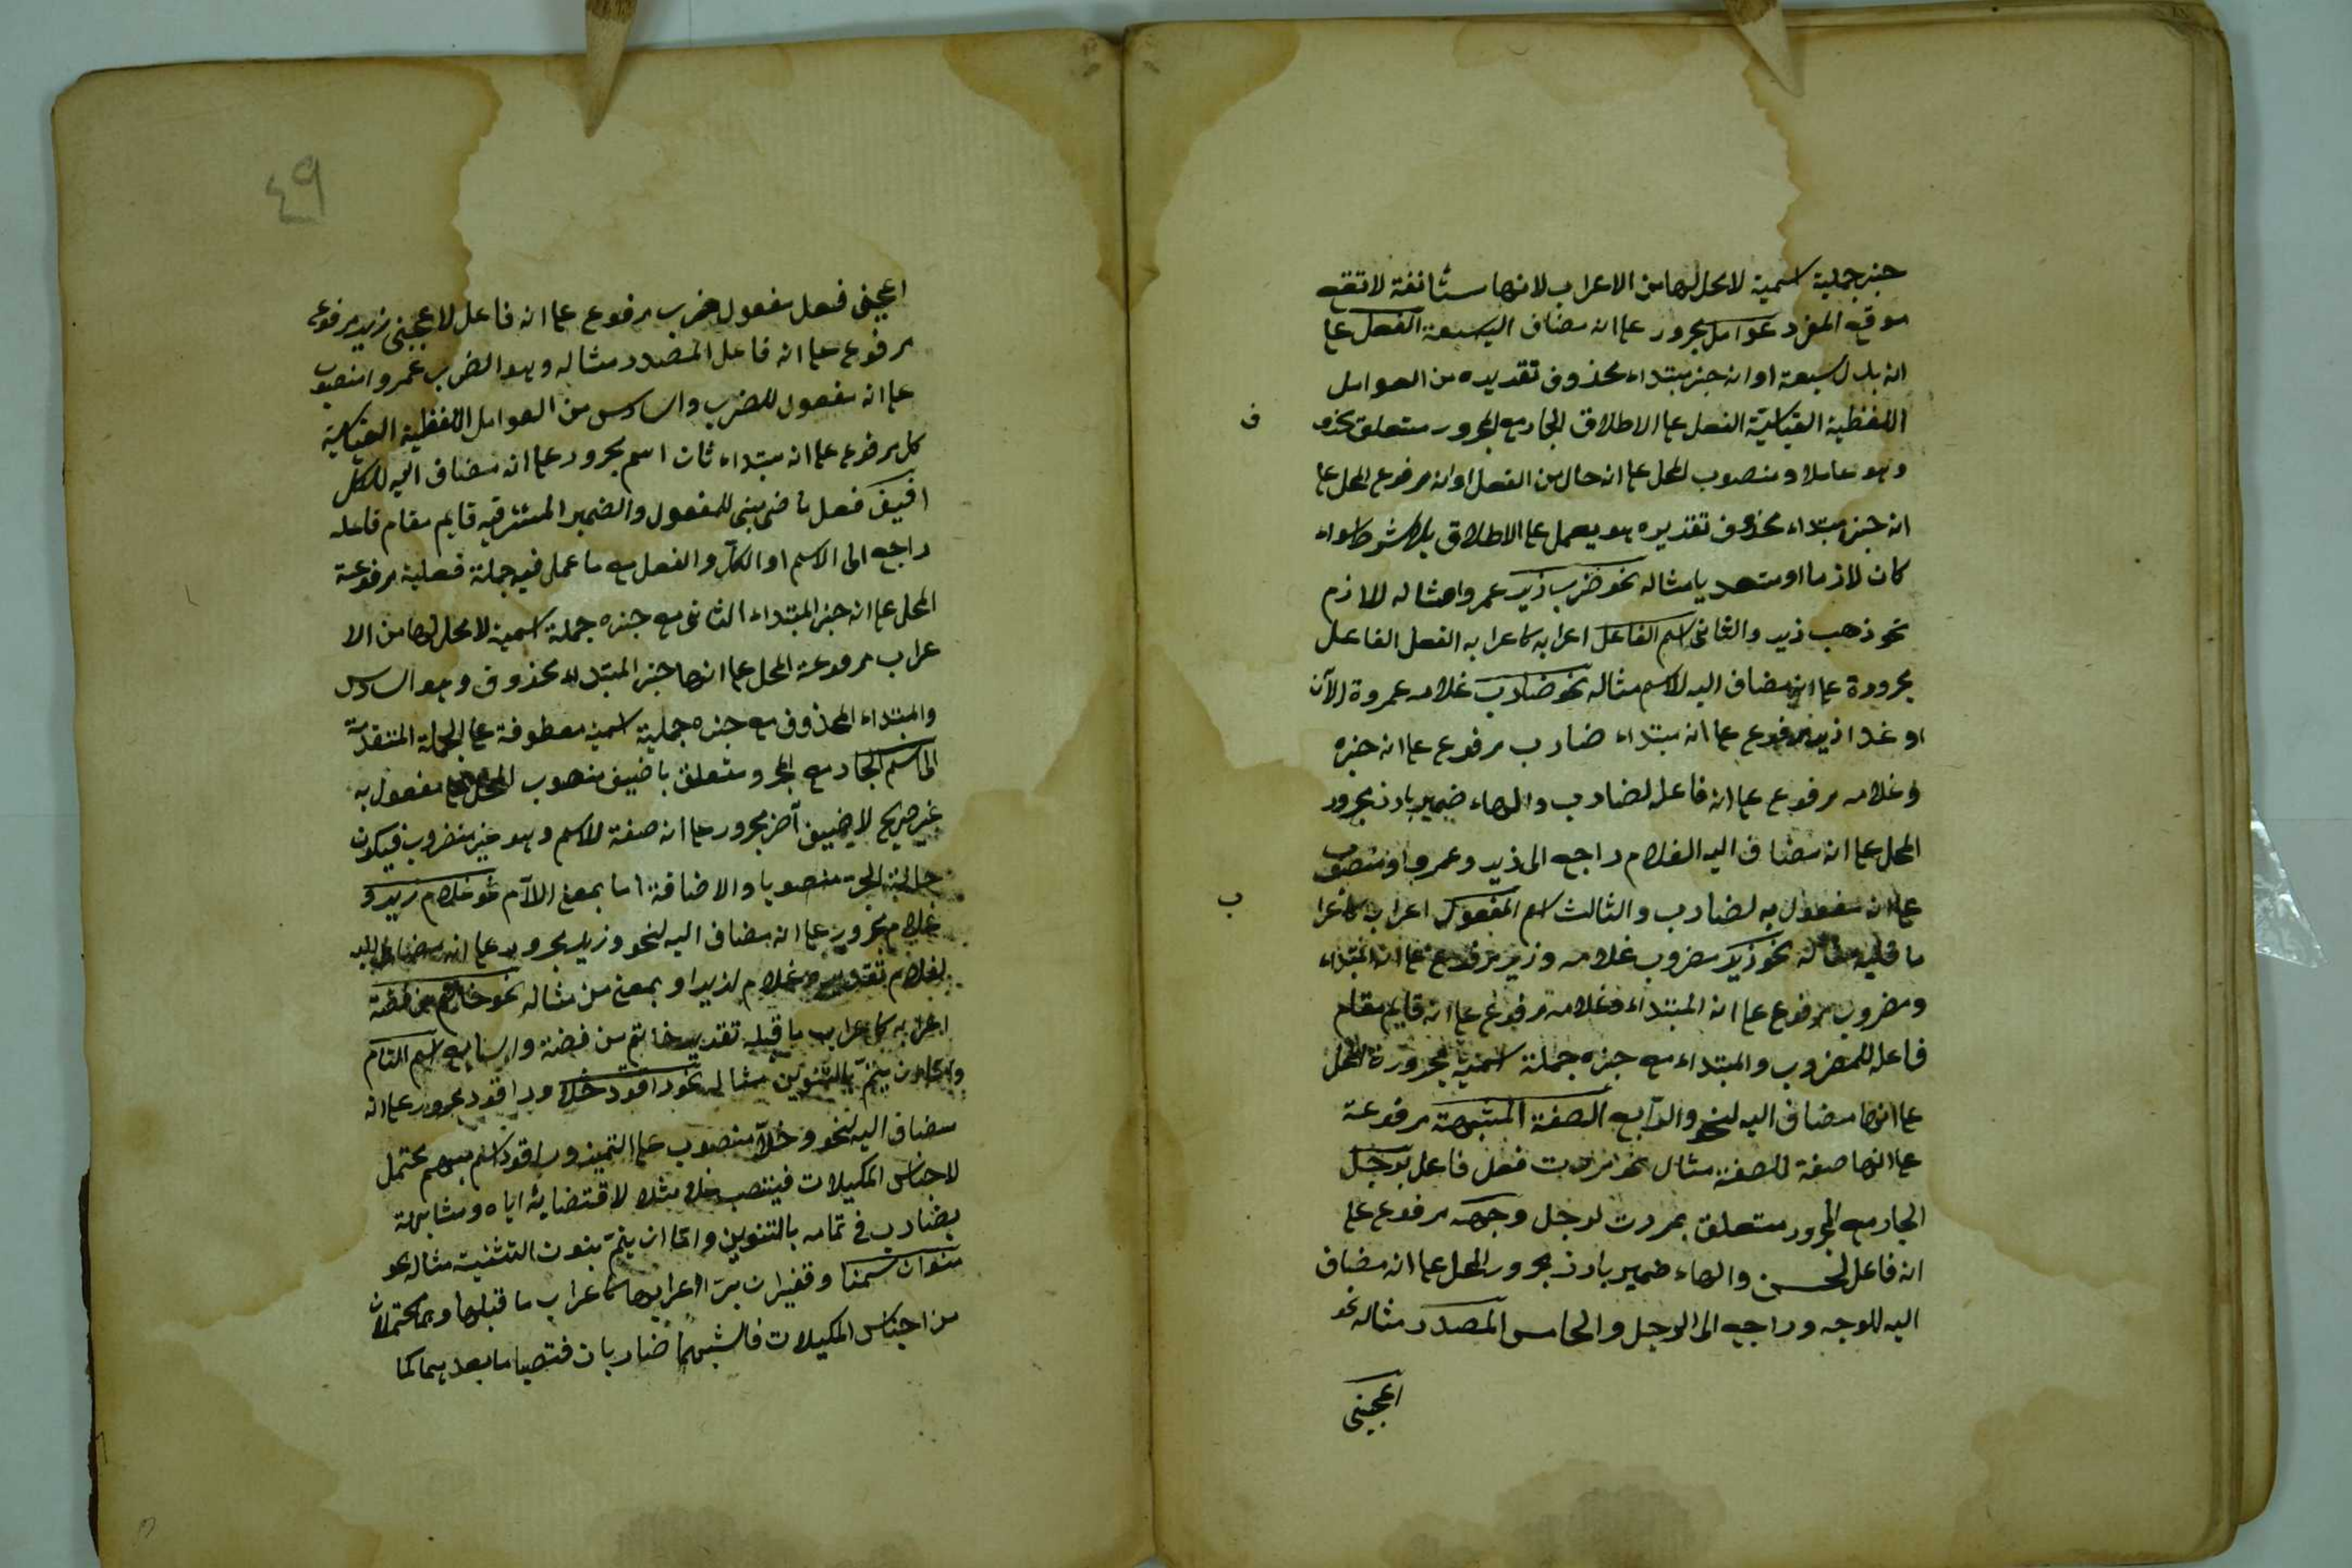 خبر جملية اسمية لا محل لها من الاعراب لانها مستأنفة لا تقع
موقع المفرد عوامل مجرور على انه مضاف اليه سبعة الفعل على
انه بدل سبعة او انه خبر مبتداء محذوف تقديره من العوامل
اللفظية القياسية الفعل على الاطلاق الجار مع المجرور متعلق بمحذو
ف
وهو عاملا ومنصوب المحل على انه حال من الفعل او انه مرفوع المحل على
انه خبر مبتداء محذوف تقديره هو يعمل على الاطلاق بلا شرط سواء
كان لازما او متعديا مثاله نحو ضرب زيد عمروا مثاله اللازم
نحو ذهب زيد والثانى اسم الفاعل اعرابه كاعرابه الفعل الفاعل
مجرورة على انه مضاف اليه لاسم مثاله نحو ضارب غلامه عمروة الآن
او غدا زيد مرفوع على انه مبتداء ضارب مرفوع على انه خبره
وغلامه مرفوع على انه فاعل لضارب والهاء ضمير بارز مجرور
المحل على انه مضاف اليه الغلام راجع الى زيد وعمروا منصوب
على انه مفعول به لضارب والثالث اسم المفعول اعرابه كاعرا
ب
ما قبله مثاله نحو زيد مضروب غلامه وزيد مرفوع على انه المبتداء
ومضروب مرفوع على انه المبتداء وغلامه مرفوع على انه قايم مقام
فاعله للمضروب والمبتداء مع خبره جملة اسمية مجرورة المحل
على انها مضاف اليه لنحو والرابع الصفة المشبهة مرفوعة
على انها صفة للصفة مثال نحو مررت فعل فاعل برجل
الجار مع المجرور متعلق بمررت لرجل وجهه مرفوع على
انه فاعل لحسن والهاء ضمير بارز مجرور المحل على انه مضاف
اليه للوجه وراجع الى الرجل والخامس المصدر مثاله نحو
اعجبنى
٤٩
اعجبنى فعل مفعول ضرب مرفوع على انه فاعل لاعجبنى زيد مرفوع
مرفوع على انه فاعل المصدر مثاله وهو الضرب عمروا منصوب
على انه مفعول للضرب والسادس من العوامل اللفظية القياسية
كل مرفوع على انه مبتداء ثان اسم مجرور على انه مضاف اليه للكل
اضيف فعل ماضى مبنى للمفعول والضمير المستتر فيه قايم مقام فاعله
راجع الى الاسم او الكل والفعل مع ما عمل فيه جملة فعلية مرفوعة
المحل على انه خبر المبتداء الثانى مع خبره جملة اسمية لا محل لها من الا
عراب مرفوعة المحل على انها خبر المبتداء محذوف وهو السادس
والمبتداء المحذوف مع خبره جملية اسمية معطوفة على الجملة المتقدمة
الى اسم الجار مع المجرو متعلق باضيف منصوب المحل مفعول به
غير صريح لاضيف آخر مجرور على انه صفة للاسم وهو غير منضرف فيكون
حالية الجر منصوبا والاضافة اما بمعنى اللآم نحو غلام زيد و
غلام مجرور على انه مضاف اليه لنحو وزيد مجرور على انه مضاف اليه
لغلام تقديره غلام لزيد او بمعنى من مثاله نحو خاتم من فضة
اعرابه كاعراب ما قبله تقديره خاتم من فضة والسابع اسم التام
يتم بالتنوين مثاله نحو راقود خلا وراقود مجرور على انه
مضاف اليه لنحو وخلآ منصوب على التميز وراقود اسم مبهم يحتمل
لاجناس المكيلات فينتصب خلا مثلا لاقتضايه اياه ومشابهة
بضارب فى تمامه بالتنوين واما ان يتم بنون التثنية مثاله نحو
منوان سمنا وقفيزان برا اعرابها كاعراب ما قبلها وهما محتملان
من اجناس المكيلات فاشبهما ضاربان فنصبا ما بعدهما كما